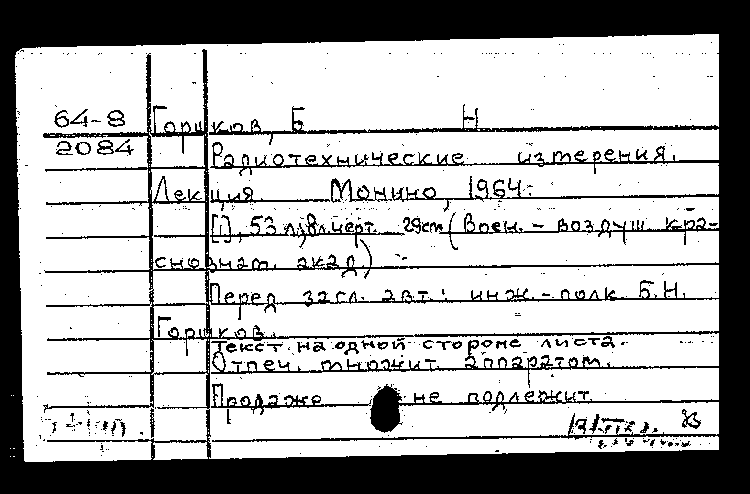 64-8 Горшков, Б Н
2084
Радиотехнические измерения.
Лекция Монино, 1964.
[1], 53 л, вкл. черт. 29 см (Воен. - воздуш. кра-
снознам. акад.)
Перед загл. авт.: инж.-полк. Б.Н.
Горшков.
Текст. на одной стороне листа.
Отпеч. множит. аппаратом.
Продаже не подлежит